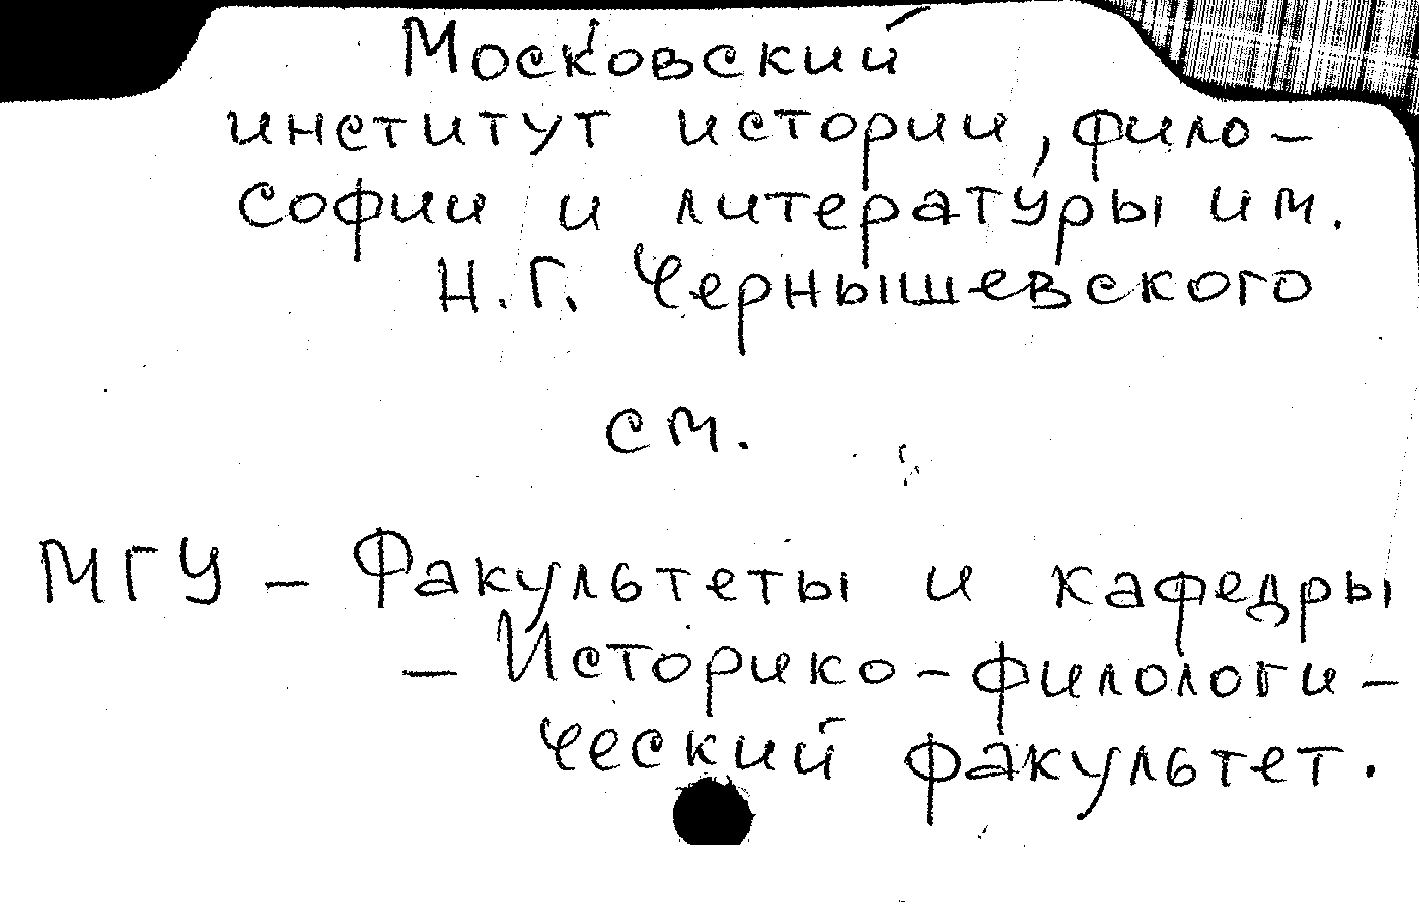 Московский
институт истории, фило-
софии и литературы им.
Н.Г. Чернышевского
см.
МГУ - Факультеты и кафедры
- Историко-филологи-
ческий факультет.